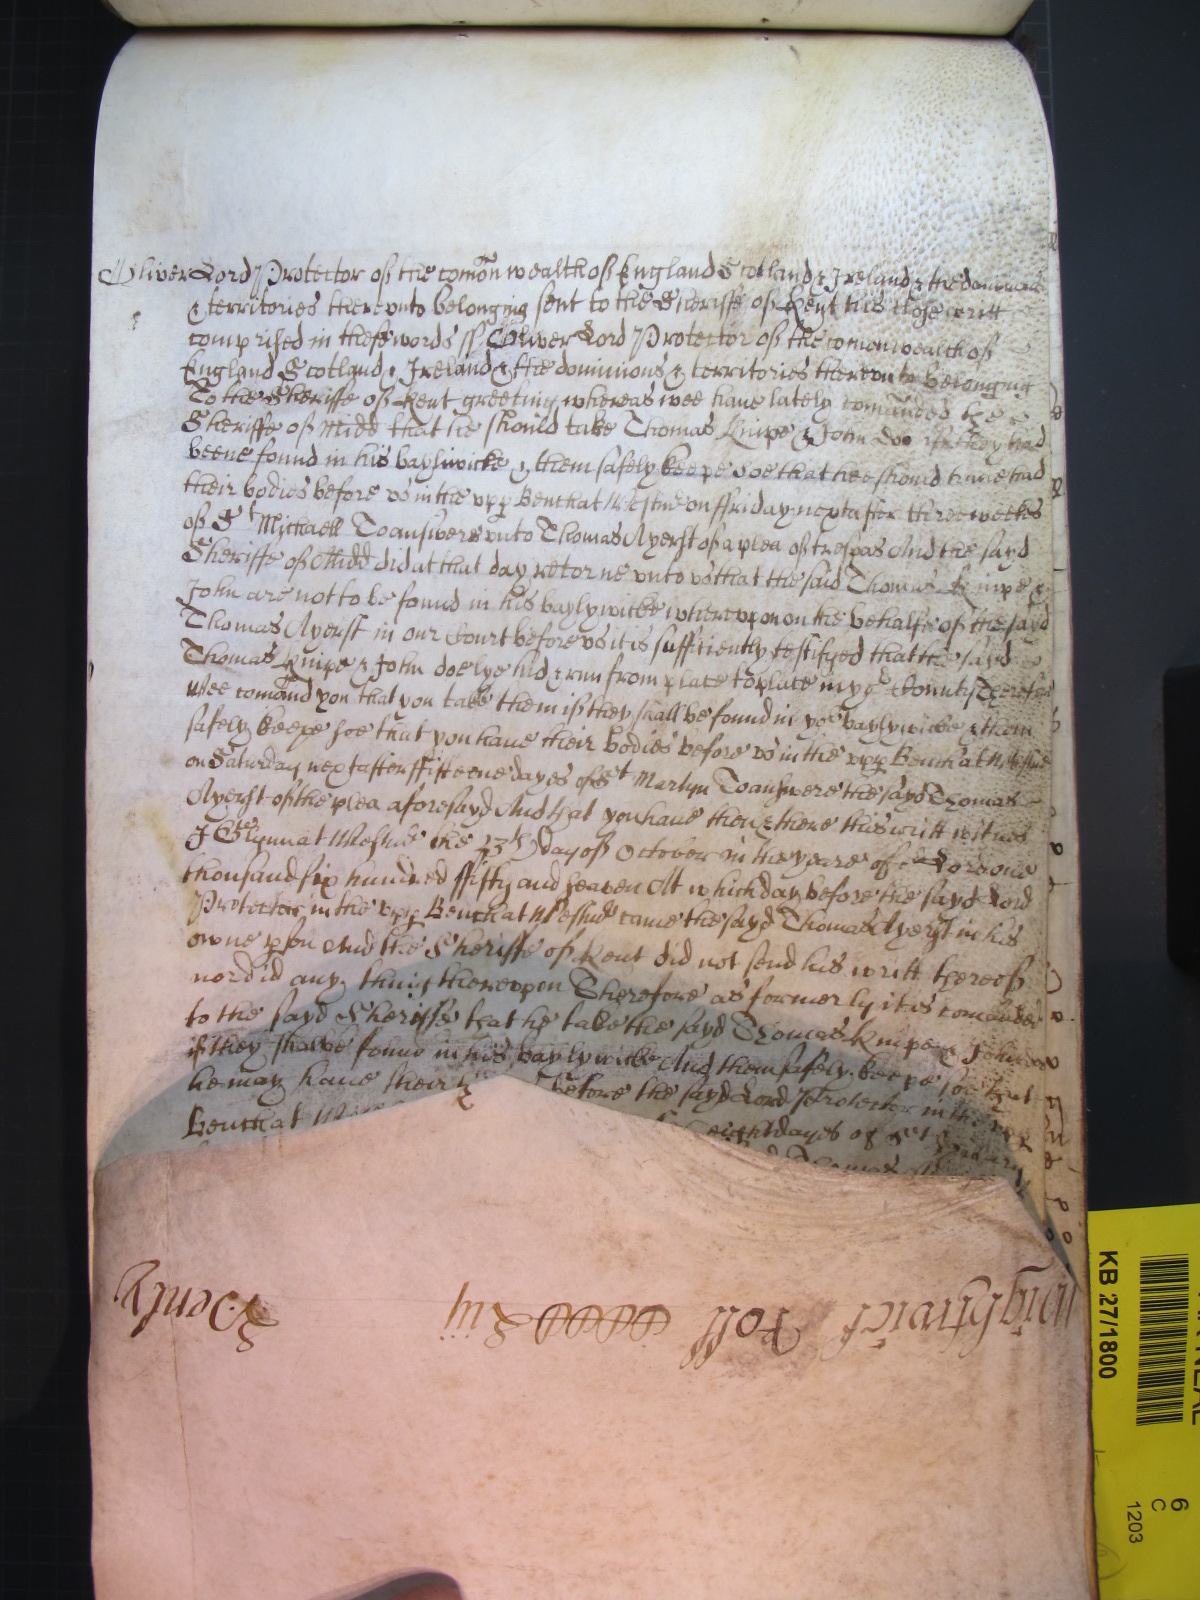 Oliver Lord Protector of the comõn wealth of England Scotland & Ireland & the dominions
& territories thereunto belonging sent to the Sheriffe of Kent his close writt
comprised in these words ss Oliver Lord Protector of the comonwealth of
England Scotland & Ireland & the dominions & territories thereunto belonging
To the Sheriffe of Kent greeting whereas wee have lately comanded the
Sheriffe of Midd that he should take Thomas Knipe & John Doe if they had
beene found in his baylywicke & them safely keepe soe that hee should have had
their bodies before us in the upp Bench at Westmr on ffriday next after three weekes
of St Michaell To answere unto Thomas Ayerst of a plea of trespas And the sayd
Sheriffe of Midd did at that day retorne unto us that the said Thomas Knipe &
John are not to be found in his baylywicke whereupon on the behalfe of the sayd
Thomas Ayerst in our Court before us it is sufficiently testifyed that the sayd
Thomas Knipe & John doe lye hid & run from place to place in yor County Therefore
Wee comand you that you take them if they shall be found in yor baylywicke & them
safely keepe soe that you have their bodies before us in the upp Bench at Westmr
on Saturday next after ffifteene dayes of St Martyn To answere the sayd Thomas
Ayerst of the plea aforesayd And that you have then & there this writt witnes
J Glynn at Westmr the 23th day of October in the yeare of or Lord one
thousand six hundred ffifty and seaven At which day before the sayd Lord
Protector in the upp Bench at Westmr came the sayd Thomas Ayerst in his
owne pson And the Sheriffe of Kent did not send his writt thereof
nor did any thing thereupon Therefore as formerly it is comanded
to the sayd Sheriffe that he take the sayd Thomas Knipe & John
if they shalbe found in his baylywicke And them safely keepe soe that
he may have their before the sayd Lord Protector in the upp
Bench at eight dayes of St
Thomas
Wightwick Roll
Kent
KB 27/1800
6
C
1203